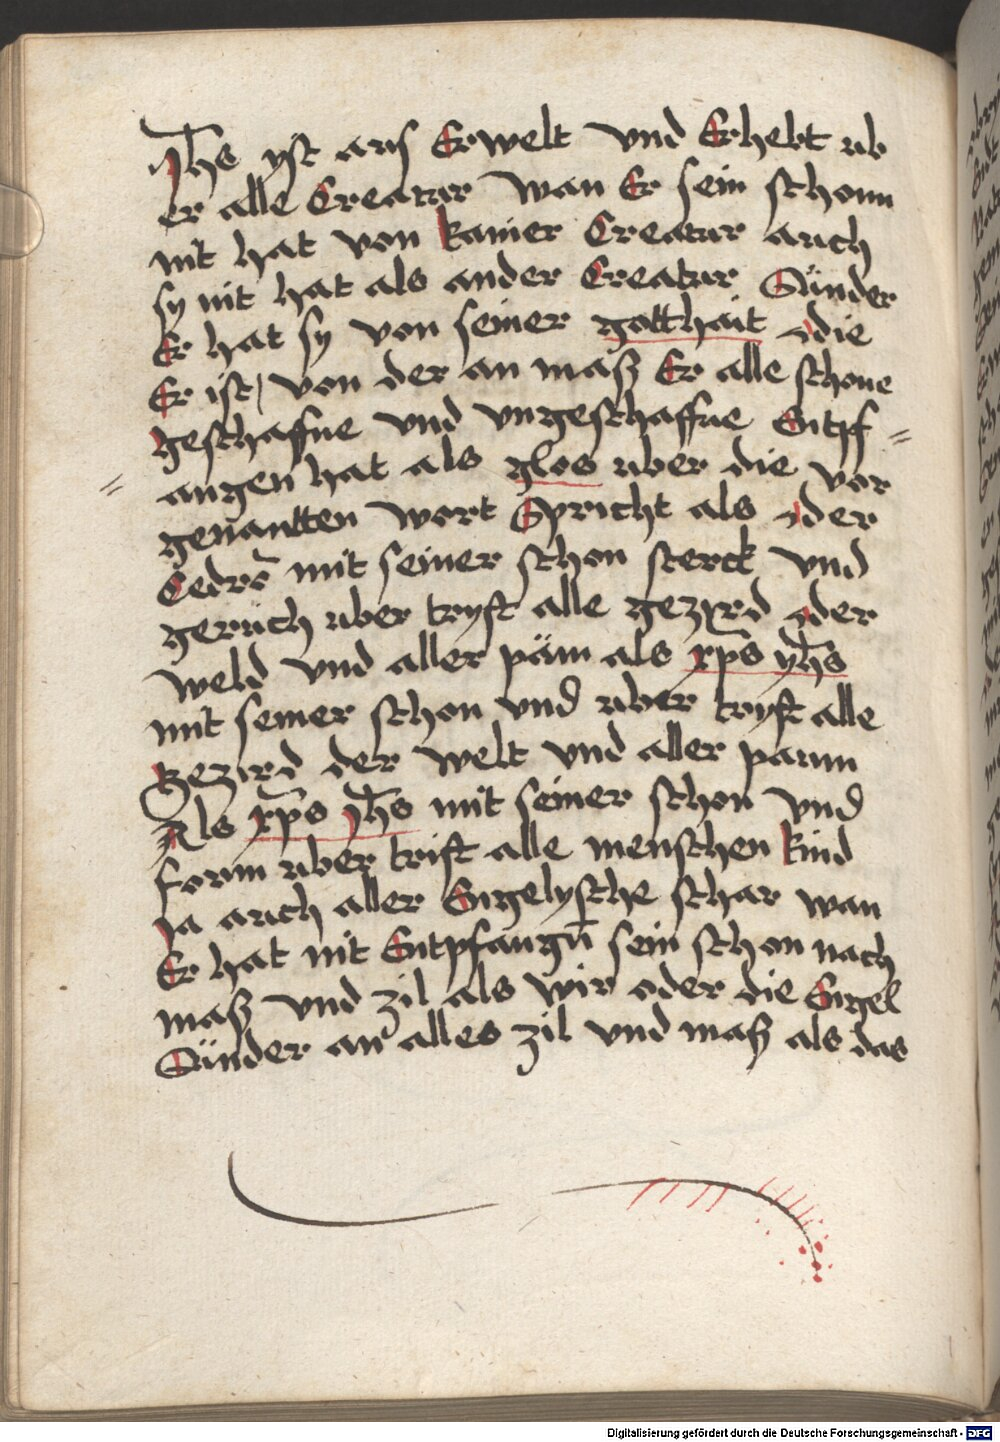 Jhs yst aus Erwelt vnd Erhebt ub
er alle Creatur wan Er sein schonn
nit hat von kainer Creatur auch
sy nit hat als ander Creatur Sünder
Er hat sy von seiner gotthait die
Er ist / von der an masz Er alle schone
geschaffne vnd vngeschaffne Entpf=
=angen hat als glos uber die vor
genantten wort Spricht als der
Cedrꝰ mit seiner schon sterck vnd
geruch uber tryft alle gezyrd der
weld vnd aller päm als xp̄s yhs
mit seiner schon vnd uber tryft alle
gezird der welt vnd aller paum
Als xp̄s yhs mit seiner schon vnd
form uber trift alle menschen kind
Ja auch aller Engelysche schar wan
Er hat nit Entpfangn̄ sein schon nach
masz vnd zil als wir oder die Engel
Sünder an alles zil vnd masz als das
Digitalisierung gefördert durch die Deutsche Forschungsgemeinschaft - DFG